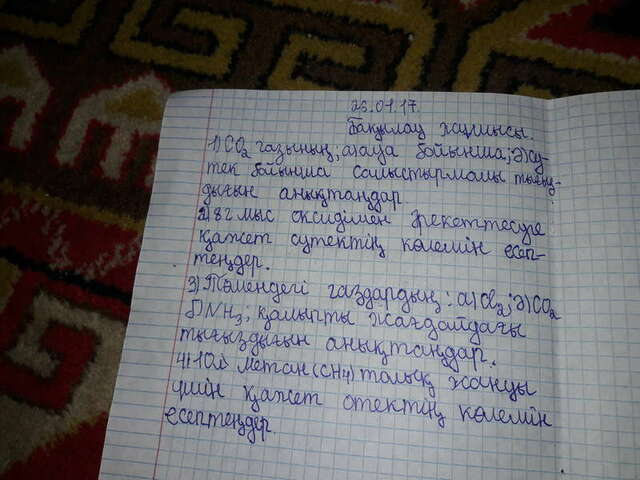 26.01.17.
Бақылау жұмысы.
1) CO₂ газының; а) ауа бойынша; ә) су-
тек бойынша салыстырмалы тығыз-
дығын анықтаңдар.
2) 8г мыс оксидімен әрекеттесуге
қажет сутектің көлемін есеп-
теңдер.
3) Төмендегі газдардың: а) Cl₂; ә) CO₂
б) NH₃, қалыпты жағдайдағы
тығыздығын анықтаңдар.
4) 10л метан (CH₄) толық жануы
үшін қажет отектің көлемін
есептеңдер.